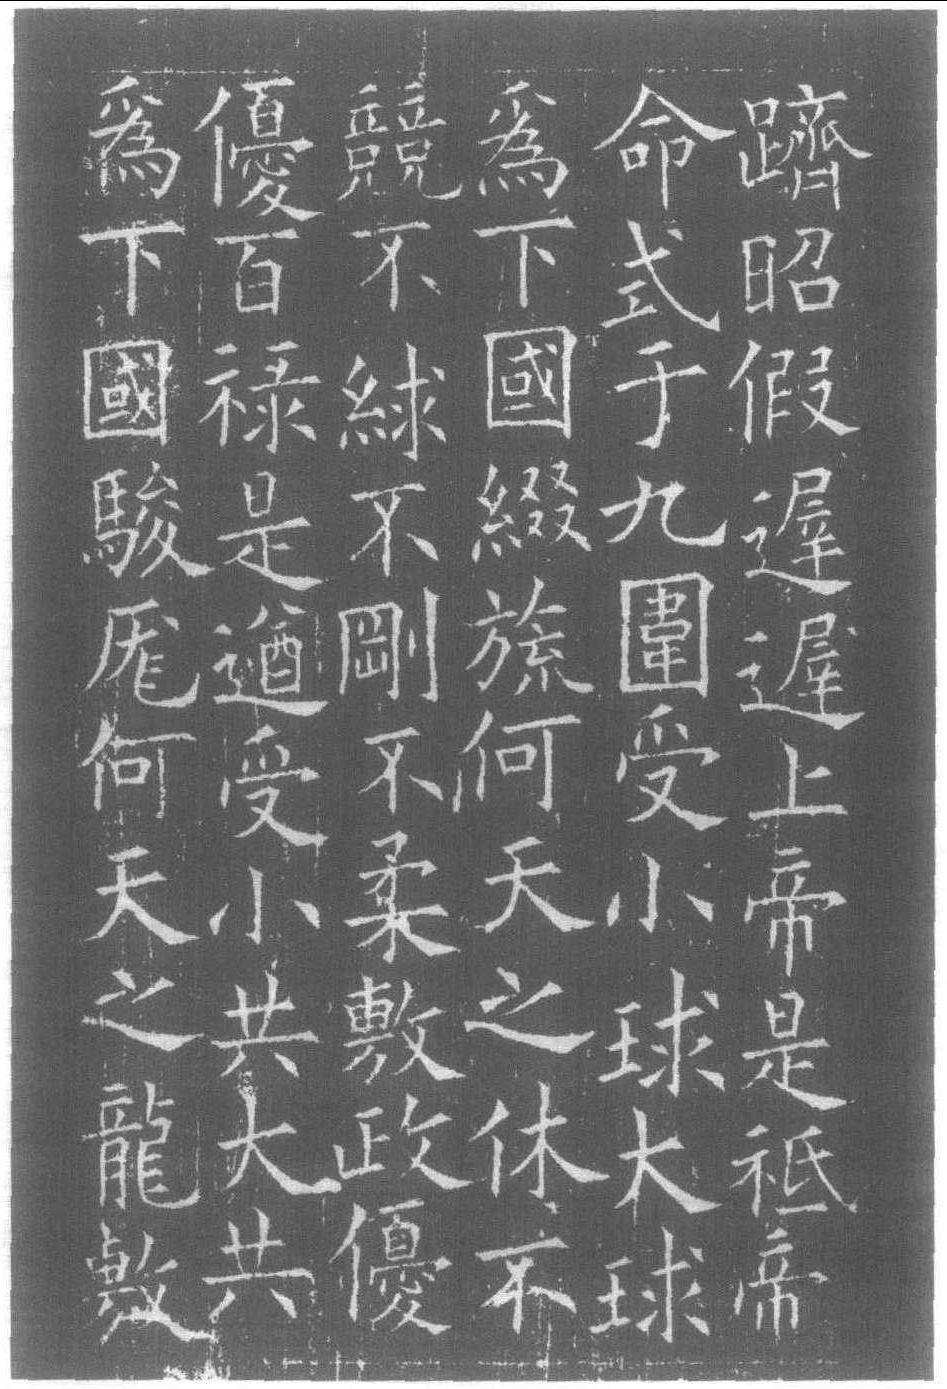 躋昭假遟遟上帝是祗帝
命式于九圍受小球大球
為下國綴旒何天之休不
競不絿不剛不柔敷政優
優百祿是遒受小共大共
為下國駿厖何天之龍敷